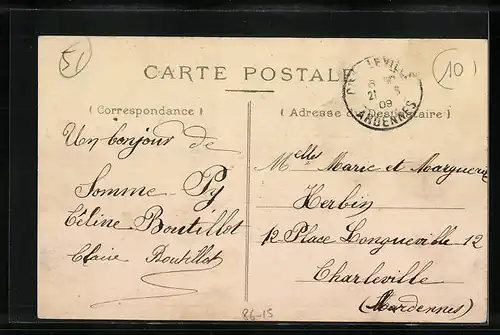 51
10
CARTE POSTALE
CHARLEVILLE
21 8
09
ARDENNES
( Correspondance )
( Adresse du Destinataire )
Un bonjour de
Somme-Py
Céline Boutillot
Claire Boutillot
Melles Marie et Marguerite
Herbin
12 Place Longueville 12
Charleville
(Ardennes)
86-15